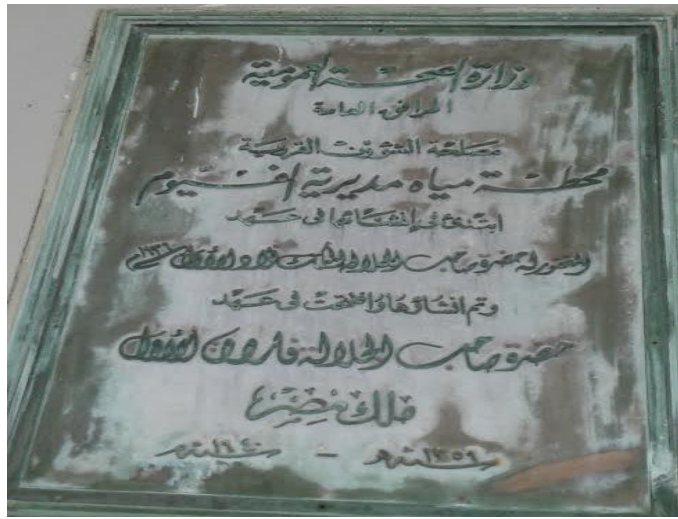 وزارة الصحة العمومية
المرافق العامة
مصلحة الشؤون القروية
محطة مياه مديرية الفيوم
ابتدئ في إنشائها في عهد
المغفور له حضرة صاحب الجلالة الملك فؤاد الأول سنة ١٩٣٦م
وتم انشاؤها وافتتحت في عهد
حضرة صاحب الجلالة فاروق الأول
ملك مصر
سنة ١٣٥٩هـ - سنة ١٩٤٠